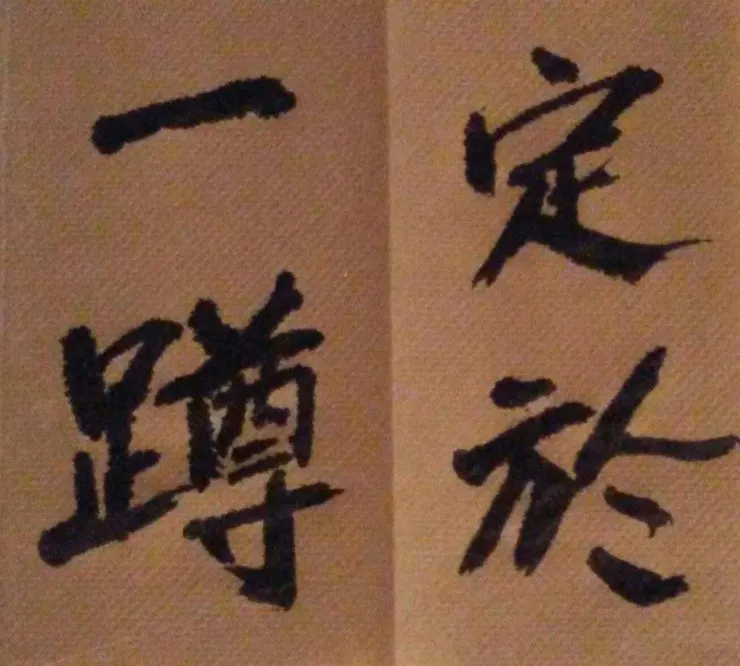 定於
一蹲